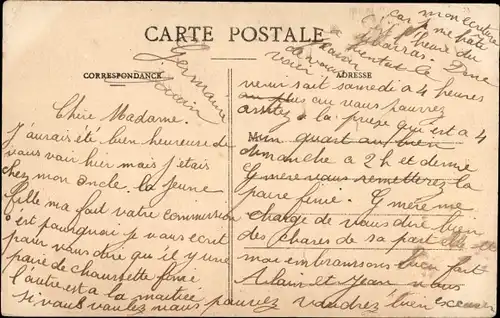 CARTE POSTALE
CORRESPONDANCE
ADRESSE
Chère Madame.
J'aurais été bien heureuse de
vous voir hier mais j'étais
chez mon oncle, la jeune
fille ma fait votre commission
est pourquoi je vous ecrit
pour vous dire qu'il y une
paire de chaussette finie
l'autre est a la moitiée
si vous voulez nous pouvez
venir soit samedi a 4 heures
ou plus au vous pouvez
a la prise qui est a 4
quart ou bien
dimanche a 2h et demie
G mère vous remetterez la
paire finie. G mère me
charge de vous dire bien
des choses de sa part elle et
moi embrassons bien fort
Alain et Jean, nous
voudrez bien excuser
mon ecriture
car je me hâte
c'est l'heure du
a bientot le
plaisir
de vous
voir
Germaine